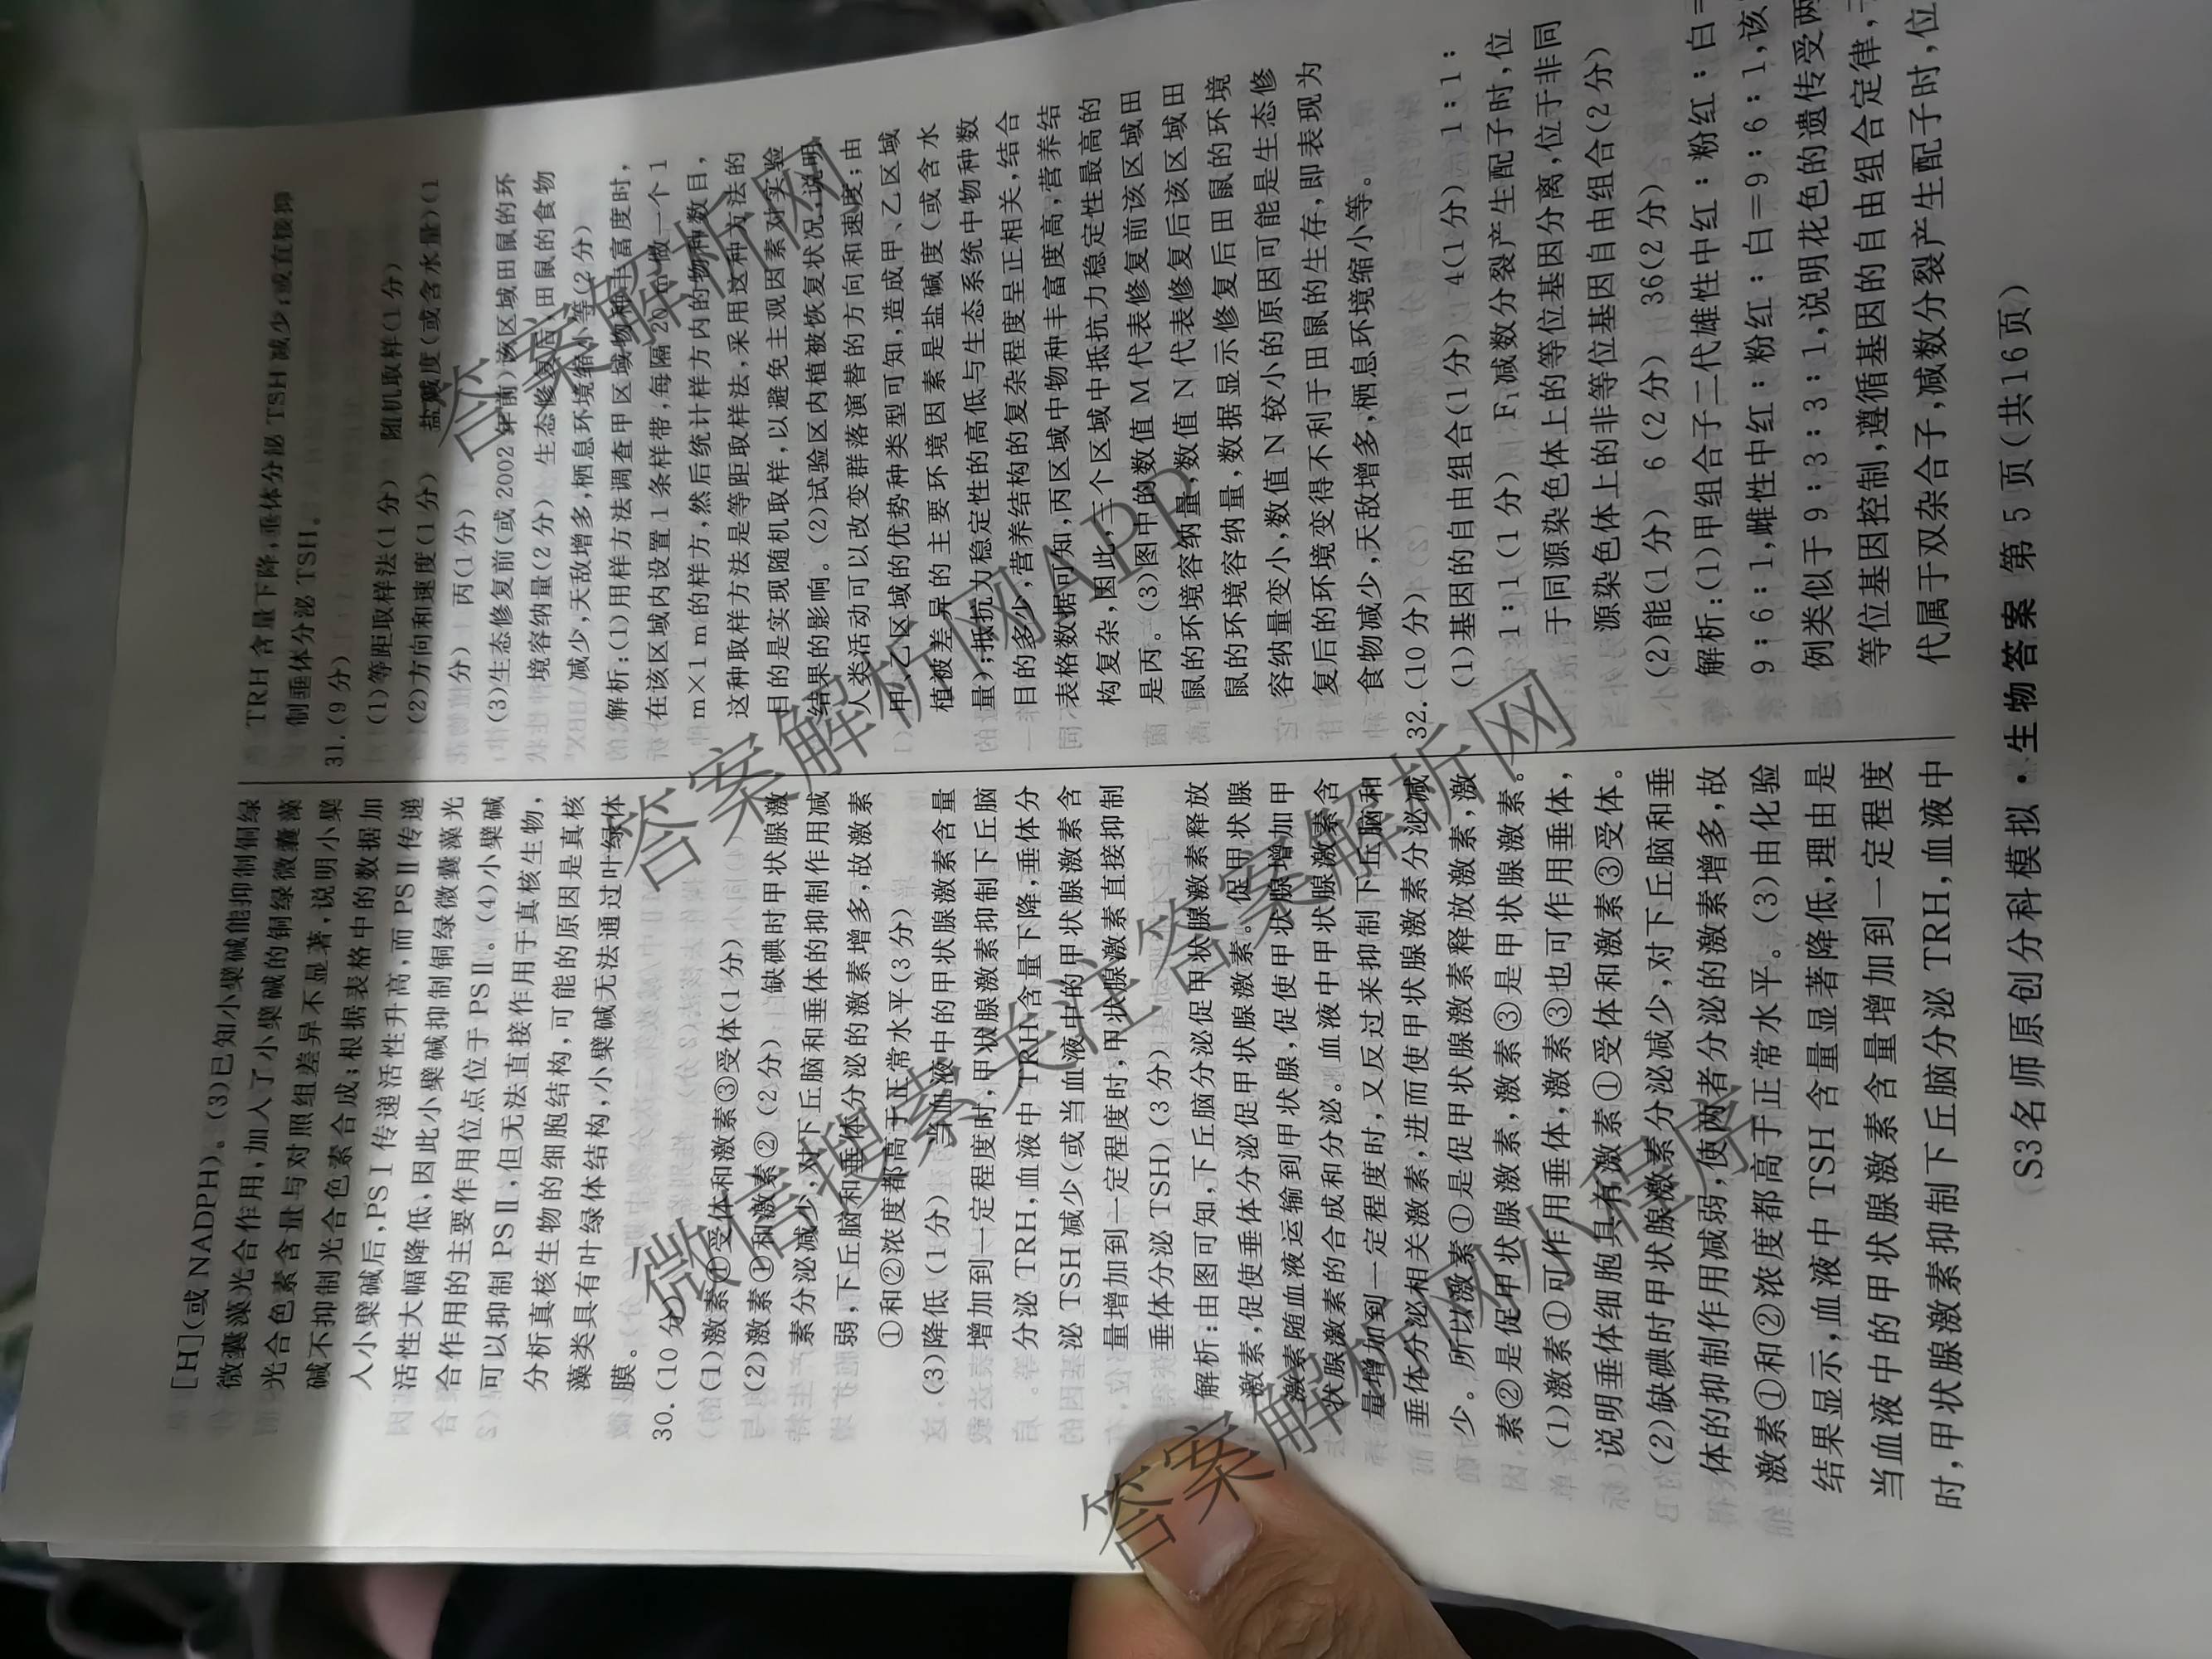 [H](或 NADPH)。(3)已知小檗碱能抑制铜绿
微囊藻光合作用,加入了小檗碱的铜绿微囊藻
光合色素含量与对照组差异不显著,说明小檗
碱不抑制光合色素合成;根据表格中的数据加
入小檗碱后,PSⅠ传递活性升高,而 PSⅡ传递
活性大幅降低,因此小檗碱抑制铜绿微囊藻光
合作用的主要作用位点位于 PSⅡ。(4)小檗碱
可以抑制 PSⅡ,但无法直接作用于真核生物,
分析真核生物的细胞结构,可能的原因是真核
藻类具有叶绿体结构,小檗碱无法通过叶绿体
膜。
30.(10 分)
(1)激素①受体和激素③受体(1 分)
(2)激素①和激素②(2 分) 缺碘时甲状腺激
素分泌减少,对下丘脑和垂体的抑制作用减
弱,下丘脑和垂体分泌的激素增多,故激素
①和②浓度都高于正常水平(3 分)
(3)降低(1 分) 当血液中的甲状腺激素含量
增加到一定程度时,甲状腺激素抑制下丘脑
分泌 TRH,血液中 TRH 含量下降,垂体分
泌 TSH 减少(或当血液中的甲状腺激素含
量增加到一定程度时,甲状腺激素直接抑制
垂体分泌 TSH)(3 分)
解析:由图可知,下丘脑分泌促甲状腺激素释放
激素,促使垂体分泌促甲状腺激素。促甲状腺
激素随血液运输到甲状腺,促使甲状腺增加甲
状腺激素的合成和分泌。血液中甲状腺激素含
量增加到一定程度时,又反过来抑制下丘脑和
垂体分泌相关激素,进而使甲状腺激素分泌减
少。所以激素①是促甲状腺激素释放激素,激
素②是促甲状腺激素,激素③是甲状腺激素。
(1)激素①可作用垂体,激素③也可作用垂体,
说明垂体细胞具有激素①受体和激素③受体。
(2)缺碘时甲状腺激素分泌减少,对下丘脑和垂
体的抑制作用减弱,使两者分泌的激素增多,故
激素①和②浓度都高于正常水平。(3)由化验
结果显示,血液中 TSH 含量显著降低,理由是
当血液中的甲状腺激素含量增加到一定程度
时,甲状腺激素抑制下丘脑分泌 TRH,血液中
TRH 含量下降,垂体分泌 TSH 减少;或直接抑
制垂体分泌 TSH。
31.(9 分)
(1)等距取样法(1 分) 随机取样(1 分)
(2)方向和速度(1 分) 盐碱度(或含水量)(1
分) 丙(1 分)
(3)生态修复前(或 2002 年前)该区域田鼠的环
境容纳量(2 分) 生态修复后,田鼠的食物
减少,天敌增多,栖息环境缩小等(2 分)
解析:(1)用样方法调查甲区域物种丰富度时,
在该区域内设置 1 条样带,每隔 20 m 做一个 1
m×1 m 的样方,然后统计样方内的物种数目,
这种取样方法是等距取样法,采用这种方法的
目的是实现随机取样,以避免主观因素对实验
结果的影响。(2)试验区内植被恢复状况,说明
人类活动可以改变群落演替的方向和速度;由
甲、乙区域的优势种类型可知,造成甲、乙区域
植被差异的主要环境因素是盐碱度(或含水
量);抵抗力稳定性的高低与生态系统中物种数
目的多少,营养结构的复杂程度呈正相关,结合
表格数据可知,丙区域中物种丰富度高,营养结
构复杂,因此,三个区域中抵抗力稳定性最高的
是丙。(3)图中的数值 M 代表修复前该区域田
鼠的环境容纳量,数值 N 代表修复后该区域田
鼠的环境容纳量,数据显示修复后田鼠的环境
容纳量变小,数值 N 较小的原因可能是生态修
复后的环境变得不利于田鼠的生存,即表现为
食物减少,天敌增多,栖息环境缩小等。
32.(10 分)
(1)基因的自由组合(1 分) 4(1 分) 1∶1∶
1∶1(1 分) F₁减数分裂产生配子时,位
于同源染色体上的等位基因分离,位于非同
源染色体上的非等位基因自由组合(2 分)
(2)能(1 分) 6(2 分) 36(2 分)
解析:(1)甲组合子二代雄性中红∶粉红∶白=
9∶6∶1,雌性中红∶粉红∶白=9∶6∶1,该
例类似于 9∶3∶3∶1,说明花色的遗传受两
等位基因控制,遵循基因的自由组合定律,
代属于双杂合子,减数分裂产生配子时,位
(S3名师原创分科模拟·生物答案 第5页(共16页)
答案解析网
答案解析网APP
微信搜索关注答案解析网
答案解析网小程序